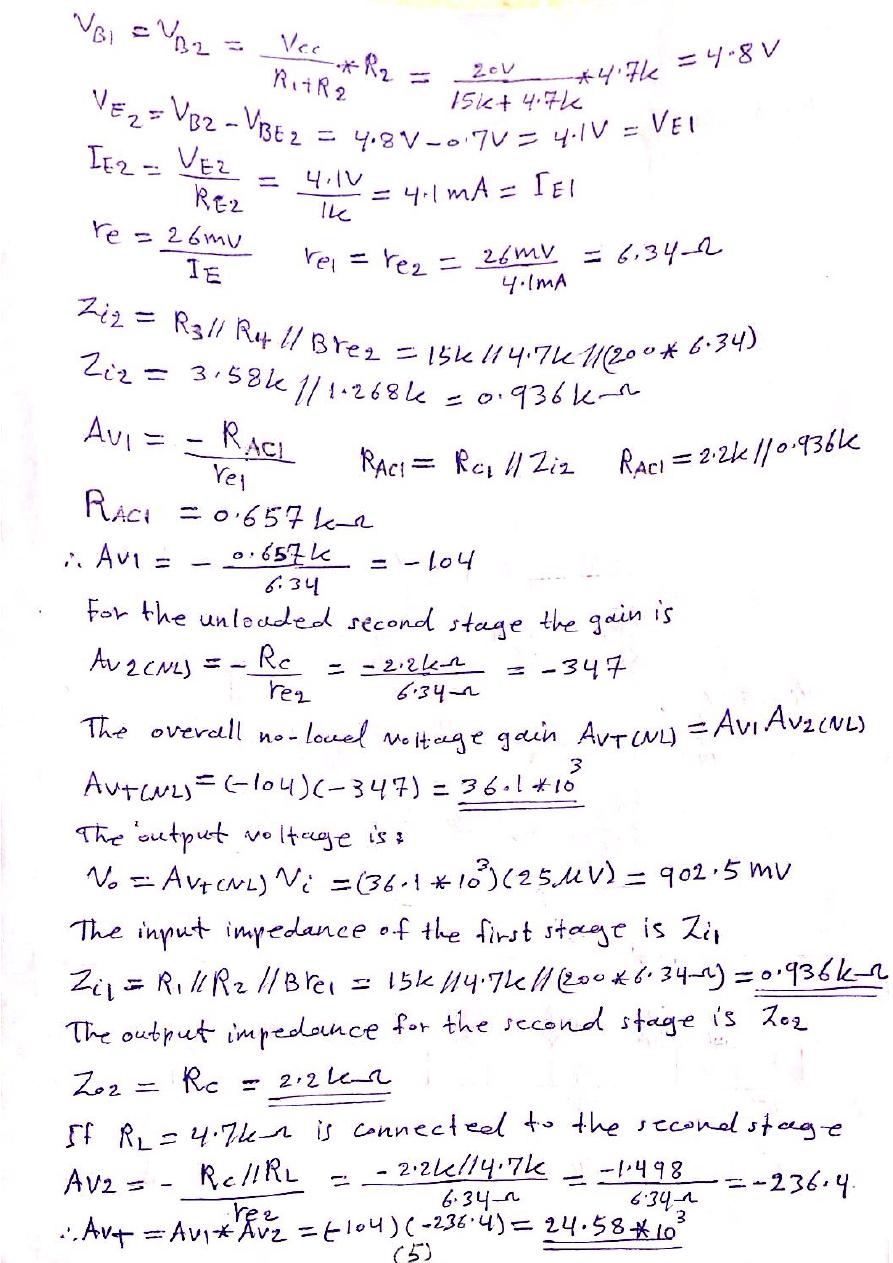 VB1 = VB2 = Vcc / (R1+R2) * R2 = 20V / (15k+4.7k) *4.7k = 4.8V
VE2 = VB2 - VBE2 = 4.8V - 0.7V = 4.1V = VE1
IE2 = VE2 / RE2 = 4.1V / 1k = 4.1mA = IE1
re = 26mV / IE   re1 = re2 = 26mV / 4.1mA = 6.34Ω
Zi2 = R3//R4//Bre2 = 15k//4.7k//(200*6.34)
Zi2 = 3.58k//1.268k = 0.936kΩ
AV1 = - RAC1 / re1   RAC1 = RC1//Zi2   RAC1 = 2.2k//0.936k
RAC1 = 0.657kΩ
∴ AV1 = - 0.657k / 6.34 = -104
For the unloaded second stage the gain is
AV2(NL) = - Rc / re2 = -2.2kΩ / 6.34Ω = -347
The overall no-load voltage gain AVT(NL) = AV1 AV2(NL)
AVT(NL) = (-104)(-347) = 36.1*10³
The output voltage is:
Vo = AVT(NL) Vi = (36.1*10³)(25μV) = 902.5mV
The input impedance of the first stage is Zi1
Zi1 = R1//R2//Bre1 = 15k//4.7k//(200*6.34Ω) = 0.936kΩ
The output impedance for the second stage is Zo2
Zo2 = Rc = 2.2kΩ
If RL = 4.7kΩ is connected to the second stage
AV2 = - Rc//RL / re2 = -2.2k//4.7k / 6.34Ω = -1.498 / 6.34Ω = -236.4
∴ AVT = AV1*AV2 = (-104)(-236.4) = 24.58*10³
(5)